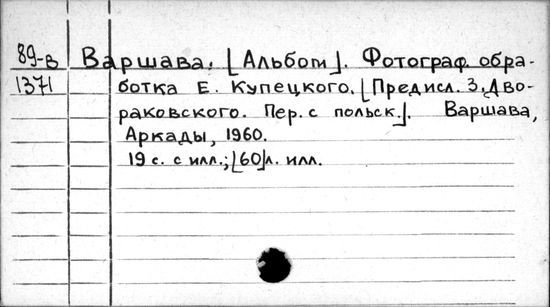 89-в Варшава. [Альбом]. Фотограф. обра-
1371 ботка Е. Купецкого. [Предисл. З. Дво-
раковского. Пер. с польск.]. Варшава,
Аркады, 1960.
19 с. с илл.; [60] л. илл.